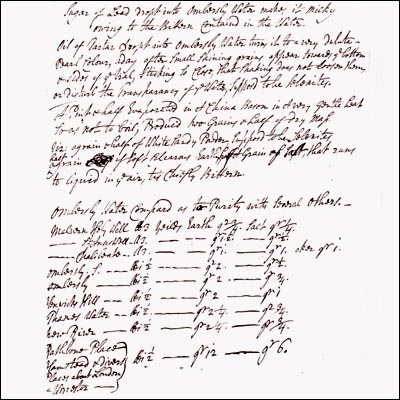 Sugar of Lead dropt into Ombersly Water makes it milky
owing to the Bittern Contained in the Water.
Oil of Tartar dropt into Ombersly Water turns it to a very delute
Pearl Colour, a day after Small Shining grains appear towards ye bottom
& sides of ye Vial, Sticking so Close, that Shaking does not loosen them
or disturb the transparancy of ye Water, Suppos'd to be Selenites.
A Pint & half Evaporated in a China Bason in a Very gentle heat
so as not to boil, Produced two Grains & half of dry Mass
Viz: a grain & half of White Powder, Suppos'd to be Selenites
half a grain of Earth & half a Grain of Salt, that runs
to liquid in ye air, tis Chiefly Bittern.
Ombersly Water Compar'd as to Purity with several others. —
Malvern Holy Well lb3 yeilds Earth gr 2 3/4 Salt gr 1/4
—— lb3. —— —— gr 1 1/2 —— gr 1/2
—— Chalibeate. lb3. —— gr 1. —— gr 1. oker gr 1.
Ombersly S. —— lb1 1/2 —— gr 2. —— gr 1/2
Ombersly —— lb1 1/2 —— gr 2 —— gr 3/4.
Well —— lb1 1/2 —— gr 2 —— gr 1
Thames Water —— lb1 1/2 —— gr 2 1/4. —— gr 3/4.
New River —— lb1 1/2 —— gr 2 1/4. —— gr 3/4.
Rathbone Place
Hamstead & divers lb1 1/2 —— gr 12 —— gr 6.
Places about London
& Worcester